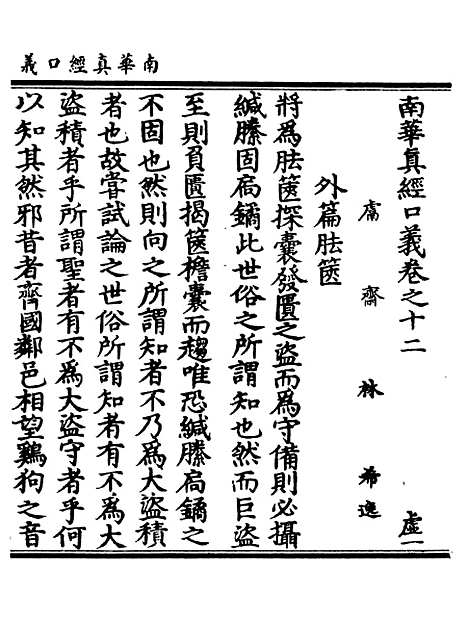 南華真經口義
南華真經口義卷之十二 虛一
鬳齋林希逸
外篇胠篋
將為胠篋探囊發匱之盜而為守備則必攝
緘縢固扃鐍此世俗之所謂知也然而巨盜
至則負匱揭篋擔囊而趨唯恐緘縢扃鐍之
不固也然則向之所謂知者不乃為大盜積
者也故嘗試論之世俗所謂知者有不為大
盜積者乎所謂聖者有不為大盜守者乎何
以知其然邪昔者齊國鄰邑相望鷄狗之音